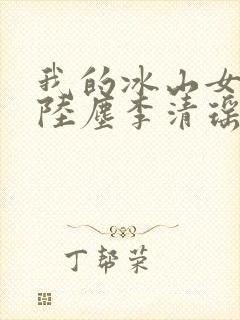 我的冰山女
陸塵李清瑶
丁帮荣